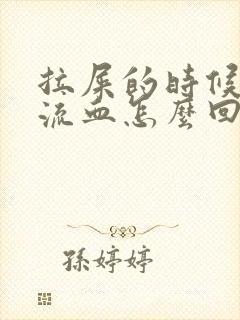 拉屎的時候
流血怎麼回
孫婷婷